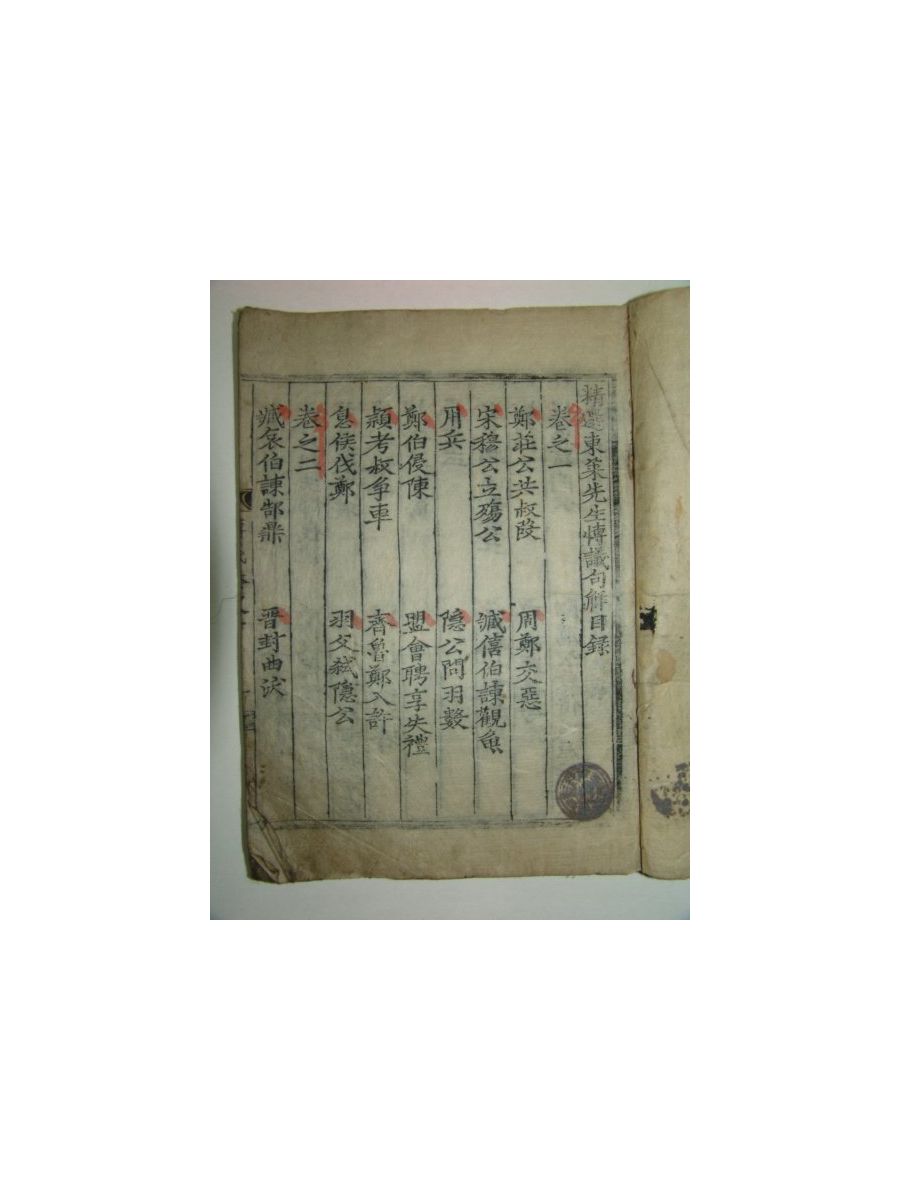 精選東萊先生博議句觧目録
卷之一
鄭莊公共叔段 周鄭交惡
宋穆公立殤公 臧僖伯諫觀魚
用兵 隱公問羽數
鄭伯侵陳 盟會聘享失禮
頴考叔争車 齊魯鄭入許
息侯伐鄭 羽父弑隱公
卷之二
臧哀伯諫郜鼎 晋封曲沃